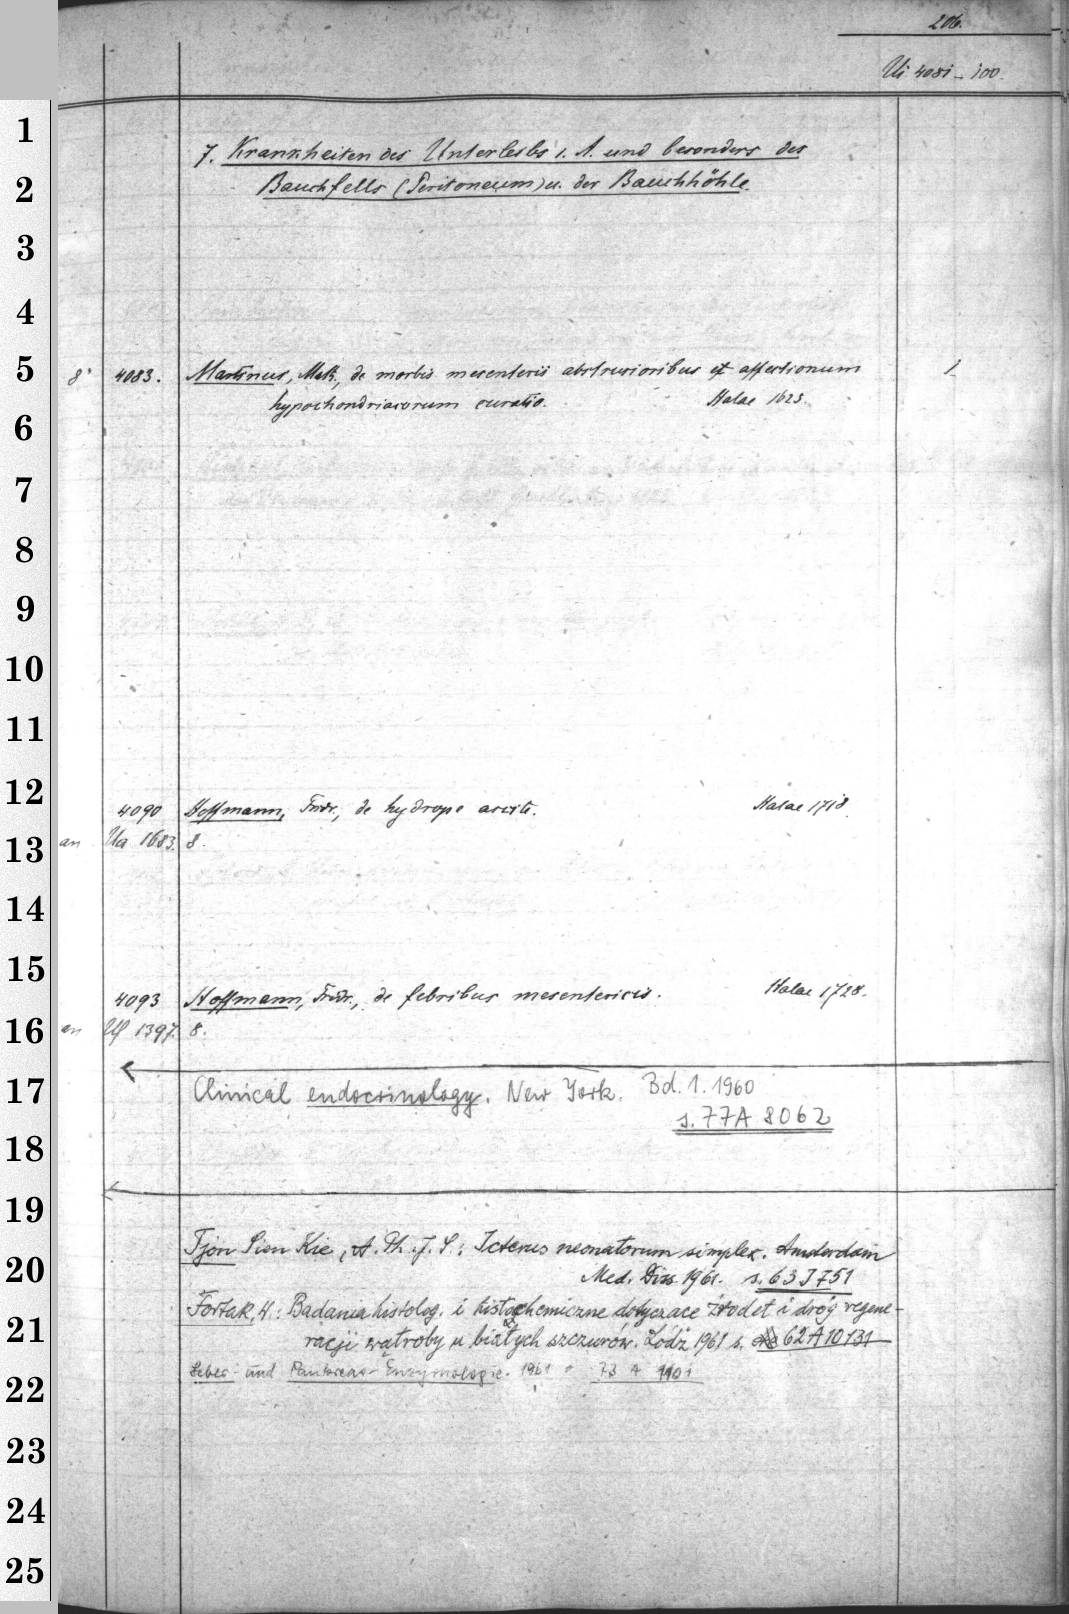 206.
Ui 4081-100.
7. Krankheiten des Unterleibs i. A. und besonders des
Bauchfells (Peritoneum) u. der Bauchhöhle.
8° 4083. Martinus, Matth., de morbis mesenterii abstrusioribus et affectionum 1
hypochondriacorum curatio. Halae 1623.
4090 Hoffmann, Fridr., de hydrope ascite. Halae 1718.
an Ua 1683. 8.
4093 Hoffmann, Fridr., de febribus mesentericis. Halae 1728.
an Uf 1397. 8.
Clinical endocrinology. New York. Bd. 1. 1960
s. 77 A 8062
Tjon Sien Kie, A. Th. J. S.: Icterus neonatorum simplex. Amsterdam
Med. Diss 1961. s. 63 J 751
Fortak, H.: Badania histolog. i histochemiczne dotyczace źrodeł i dróg regene-
racji wątroby u białych szczurów. Łodź 1961 s. 62 A 10131
Leber- und Pankreas-Enzymologie. 1961 = 73 A 1101
1
2
3
4
5
6
7
8
9
10
11
12
13
14
15
16
17
18
19
20
21
22
23
24
25